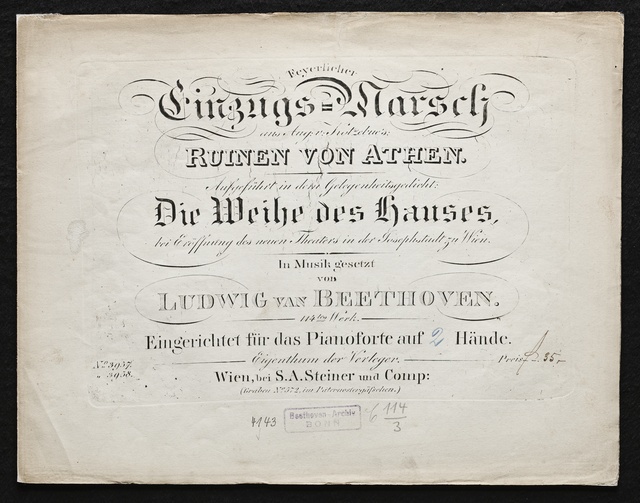 Feyerlicher
Einzugs=Marsch
aus Aug. v. Kotzebue's:
RUINEN VON ATHEN.
Aufgeführt in dem Gelegenheitsgedicht:
Die Weihe des Hauses,
bei Eröffnung des neuen Theaters in der Josephstadt zu Wien.
In Musik gesetzt
von
LUDWIG VAN BEETHOVEN.
114tes Werk.
Eingerichtet für das Pianoforte auf 2 Hände.
Eigenthum der Verleger.
No. 3957.
3958.
Preis 35.
Wien, bei S. A. Steiner und Comp:
(Graben No. 572, im Paternostergäßchen.)
4143
Beethoven-Archiv
BONN
C 114
3